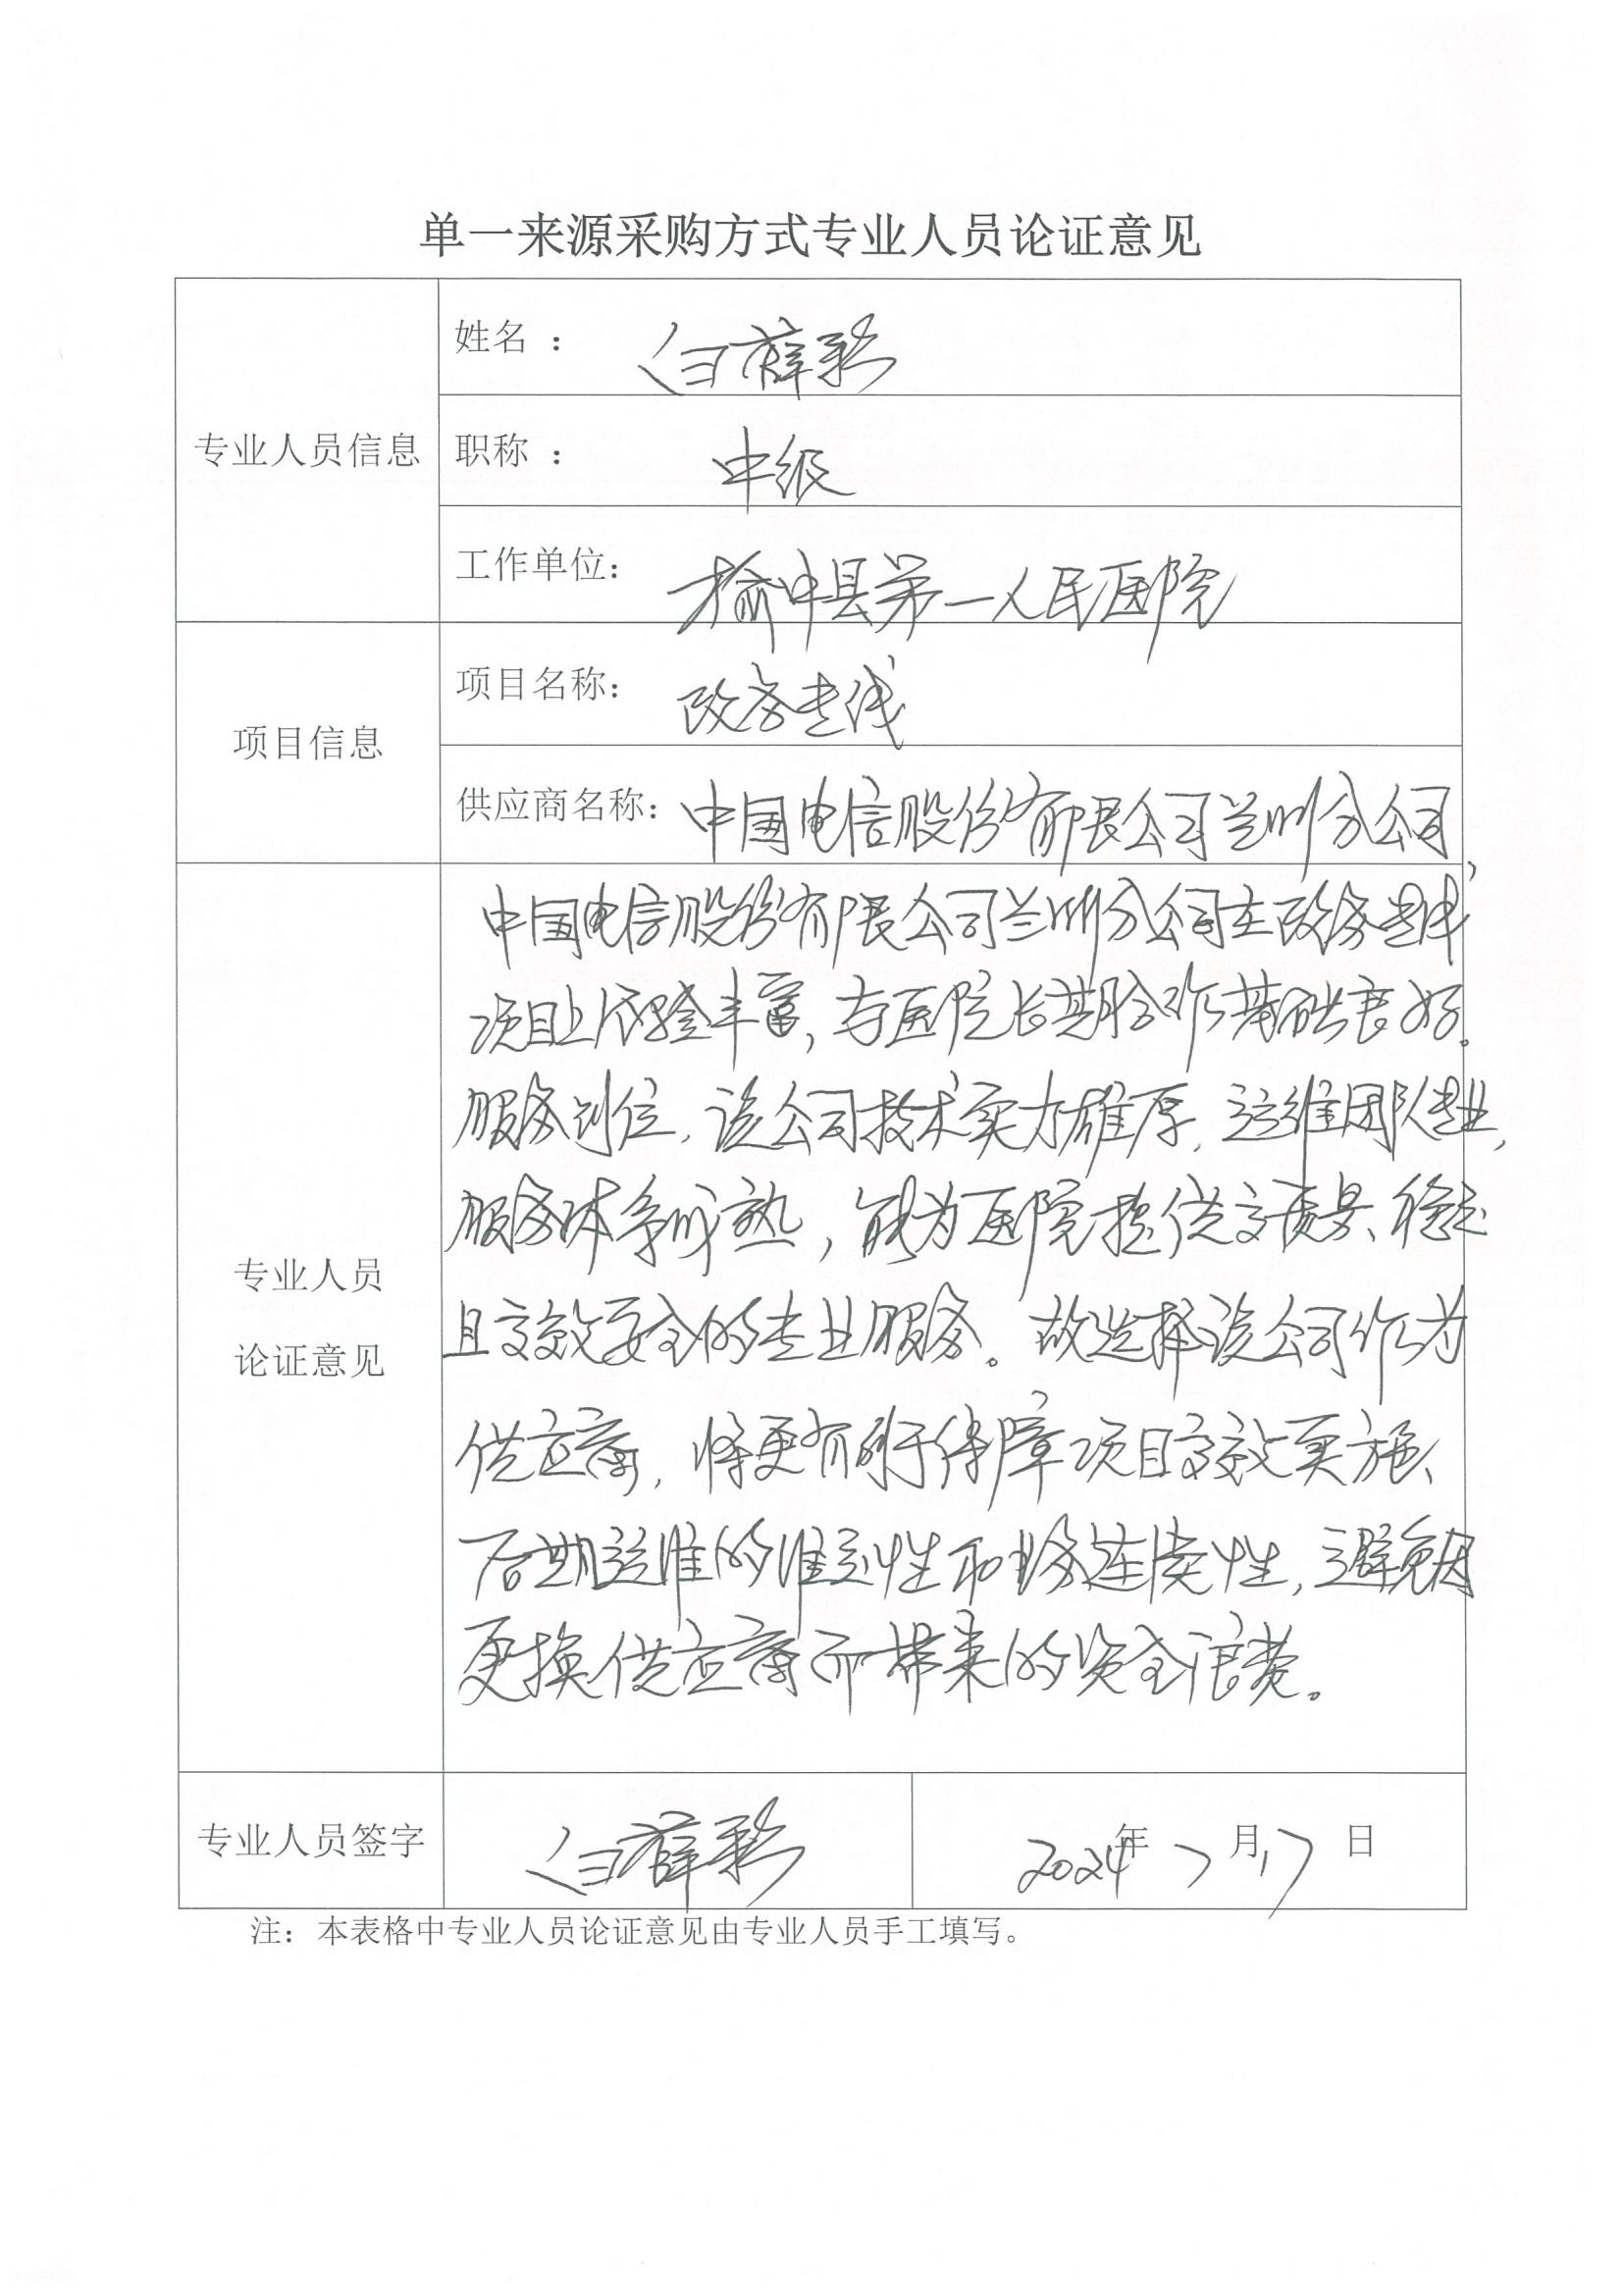 单一来源采购方式专业人员论证意见
专业人员信息
姓名 : 白薛彩
职称 : 中级
工作单位: 榆中县第一人民医院
项目信息
项目名称: 政务专线
供应商名称: 中国电信股份有限公司兰州分公司
专业人员
论证意见
中国电信股份有限公司兰州分公司在政务专线
项目上经验丰富,与医院长期合作基础良好。
服务到位,该公司技术实力雄厚,运维团队专业,
服务体系成熟,能为医院提供高质量、稳定
且高效安全的专业服务。故选择该公司作为
供应商,将更有利于保障项目高效实施、
后期运维的稳定性和业务连续性,避免因
更换供应商而带来的资金浪费。
专业人员签字 白薛彩 2024年7月17日
注: 本表格中专业人员论证意见由专业人员手工填写。